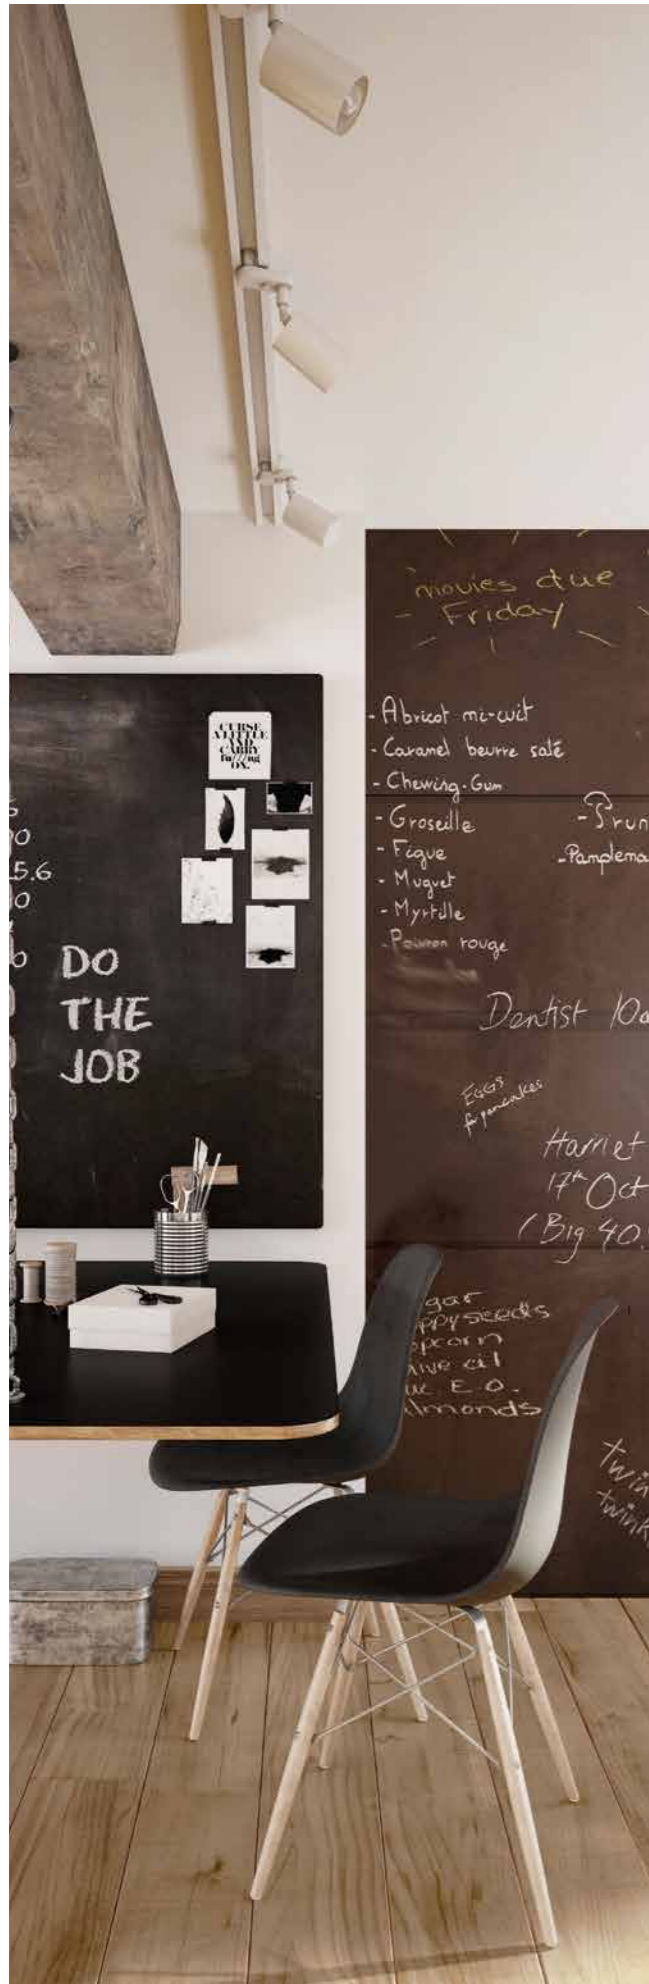 CURSE
A LITTLE
AND
CARRY
fu///ng
ON.
5.6
DO
THE
JOB
movies due
Friday
- Abricot mi-cuit
- Caramel beurre salé
- Chewing-Gum
- Groseille
- Figue
- Muguet
- Myrtille
- Poivron rouge
- Prun
- Pamplema
Dentist 10a
EGGS
for pancakes
Harriet
17th Oct
(Big 40.
gar
ppyseeds
opcorn
live oil
E.O.
lmonds
twin
twink